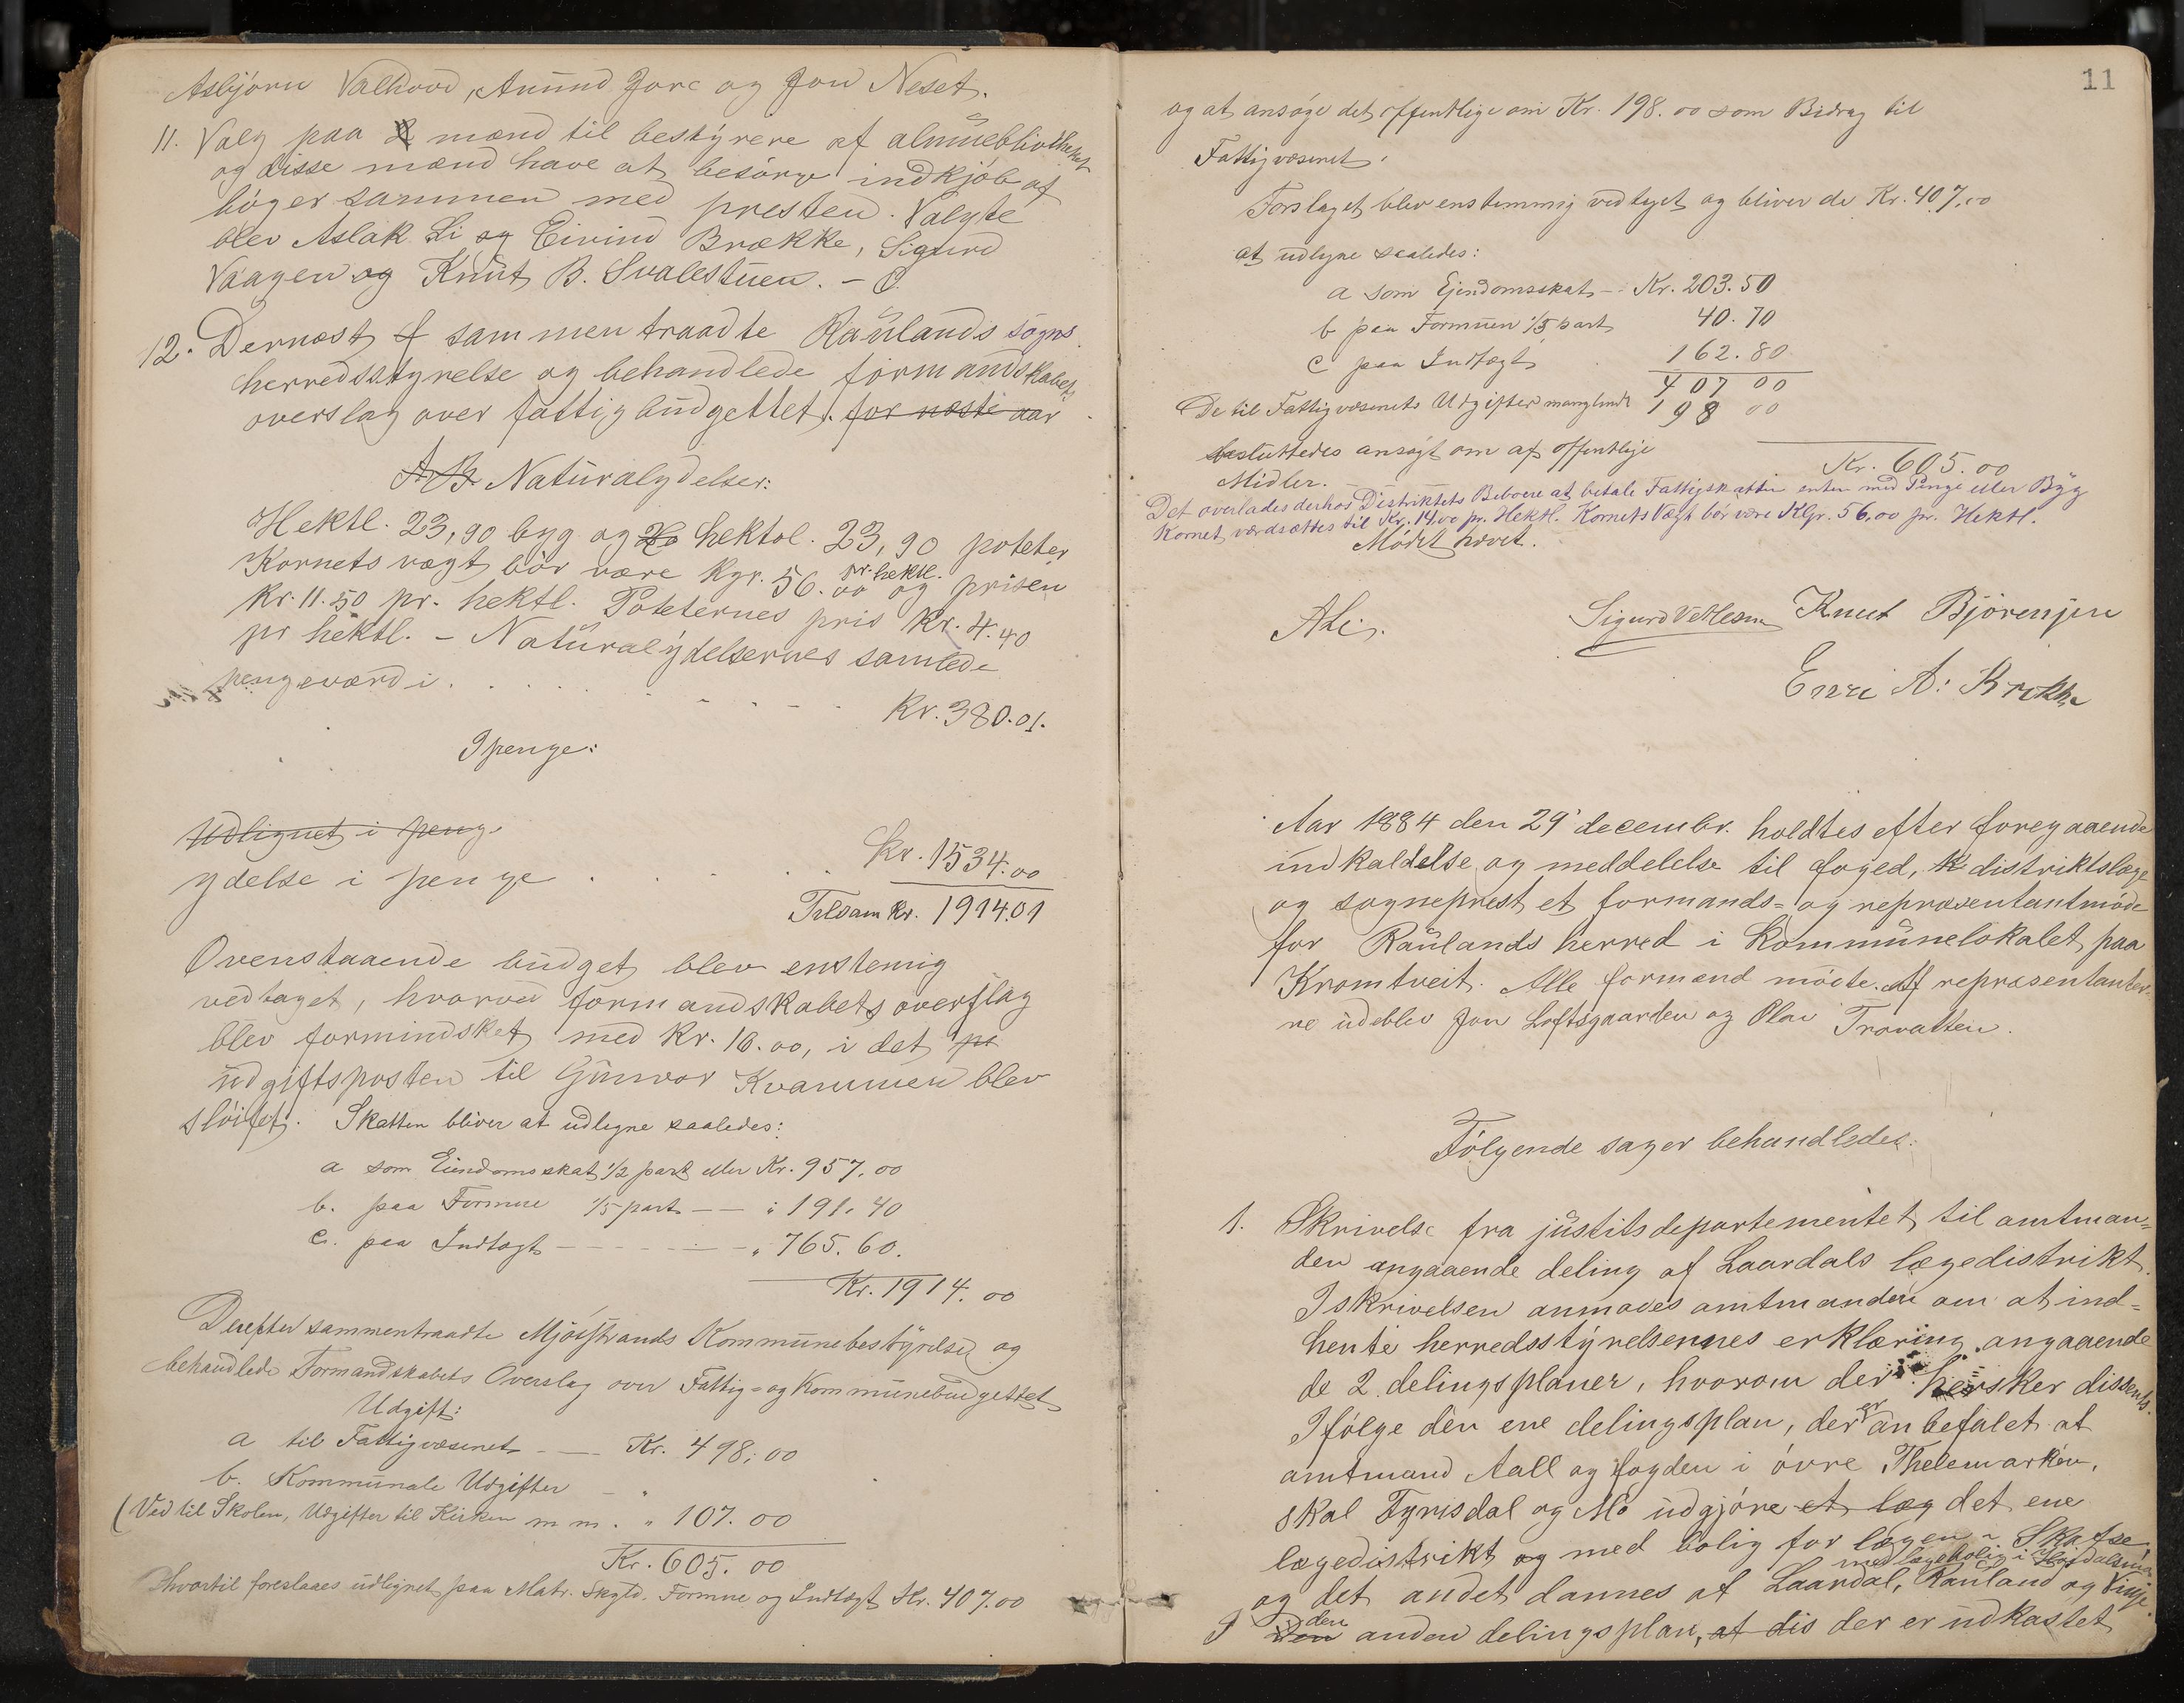 Asbjörn Valhovd, Anund Jore og Jon Neset.
11. Valg paa 2 mænd til bestÿrere af almuebliothekat
og disse mænd have at besörge indkjöb af
böger sammen med presten. Valgte
blev Aslak Li og Eivind Brække, Sigurd
Vaagen og Knut B. Svalestuen. –
12. Dernæst sammentraadte Raulands sogns
herredsstyrelse og behandlede formandskabets
overslag over fattigbudgettet. for næste aar
A B. Naturalydelser:
Hektl. 23,90 byg og hektol. 23,90 poteter
Kornets vægt bör være Kgr. 56.00 pr. hektl. og prisen
Kr. 11.50 pr. hektl. Poteternes pris Kr. 4.40
pr hektl. – Naturalÿdelsernes samlede
pengeværdi . . . . . . . . .
Kr. 380.01.
I penge:
Udlignet i peng
ydelse i penge . . . . . Kr. 1534.00
Tilsam Kr. 1914.01
Ovenstaaende budget blev enstemig
vedtaget, hvorved formandskabets overslag
blev formindsket med Kr. 16.00, i det
udgiftsposten til Gunvor Kvammen blev
slöifet. Skatten bliver at udligne saaledes:
a som Eiendomsskat 1/2 part eller Kr. 957.00
b. paa Formue 1/5 part — — „ 191.40
c. paa Indtægt – – – – – „ 765.60.
Kr. 1914.00
Derefter sammentraadte Mjösstrands Kommunebestÿrelse og
behandlede Formandskabets Overslag over Fattig- og Kommunebudgettet
Udgift:
a til Fattigvæsenet – — Kr. 498,00
b. Kommunale Udgifter – „
(Ved til Skolen, Udgifter til Kirken m m. „ 107.00
Kr. 605.00
hvortil foreslaaes udlignet paa Matr. Skyld, Formue og Indtægt Kr. 407.00
11
og at ansöge det offentlige om Kr. 198.00 som Bidrag til
Fattigvæsenet.
Forslaget blev enstemmig vedtaget og bliver de Kr. 407.00
at udligne saaledes:
a som Ejendomsskat – Kr. 203.50
b paa Formuen 1/5 part 40.70
c paa Indtægt 162.80
407 00
De til Fattigvæsenets Udgifter manglende 198 00
besluttedes ansögt om af offentlige
Kr. 605.00
Midler.
Det overlades derhos Distriktets Beboere at betale Fattigskatten enten med Penge eller Byg
Kornet værdsættes til Kr. 14.00 pr. Hektl. Kornets Vægt bör være KGr. 56,00 pr. Hektl.
Mödet hævet.
ALi. Sigurd Vehlesen Knut Björenjen
A: Brække
Aar 1884 den 29' decembr. holdtes efter foregaaende
indkaldelse og meddelelse til foged, distriktslæge
og sogneprest et formands- og repræsentantmöde
for Raulands herred i Kommunelokalet paa
Kromtveit. Alle formænd mödte. Af repræsentanter-
ne udeblev Jon Loftsgaarden og Olav Trovatten.
Fölgende sager behandledes:
1. Skrivelse fra justitsdepartementet til amtman-
den angaaende deling af Laardals lægedistrikt.
I skrivelsen anmodes amtmanden om at ind-
hente herredsstÿrelsernes erklæring angaaende
de 2 delingsplaner, hvorom der hersker dissents.
Ifölge den ene delingsplan, der er anbefalet af
amtmand Aall og fogden i övre Thelemarken,
skal Fyrisdal og Mo udgjöre et læg det ene
lægedistrikt og med bolig for lægen i Skafse
med lægebolig i Höidalsmo
og det andet dannes af Laardal, Rauland og Vinje.
I Den den anden delingsplan, at dis der er udkastet